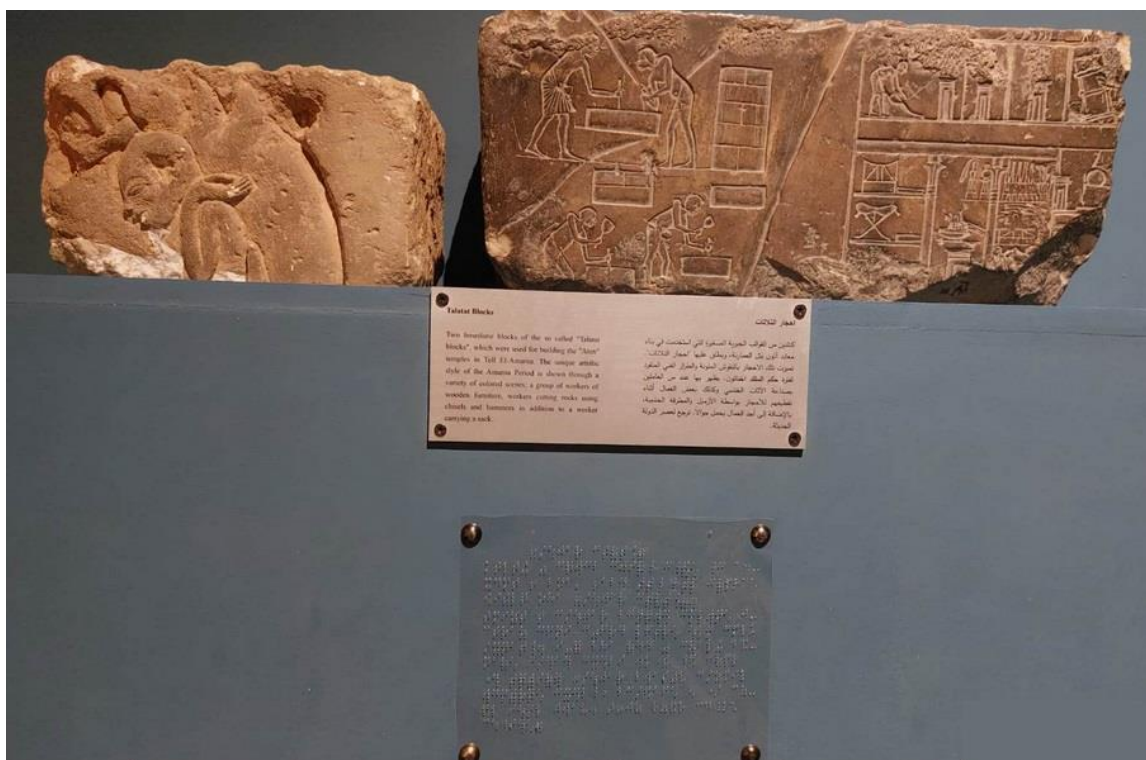 Talatat Blocks
Two limestone blocks of the so called "Talatat
blocks", which were used for building the "Aten"
temples in Tell El-Amarna. The unique artistic
style of the Amarna Period is shown through a
variety of colored scenes; a group of workers of
wooden furniture, workers cutting rocks using
chisels and hammers in addition to a worker
carrying a sack.
احجار التلاتات
كتلتين من القوالب الحجرية الصغيرة التي استخدمت في بناء
معابد آتون بتل العمارنة، ويطلق عليها "احجار التلاتات".
تميزت تلك الاحجار بالنقوش الملونة والطراز الفني المنفرد
لفترة حكم الملك اخناتون، يظهر بها عدد من العاملين
بصناعة الأثاث الخشبي وكذلك بعض العمال أثناء
تقطيعهم للأحجار بواسطة الأزميل والمطرقة الخشبية،
بالإضافة إلى أحد العمال يحمل جوالا. ترجع لعصر الدولة
الحديثة.